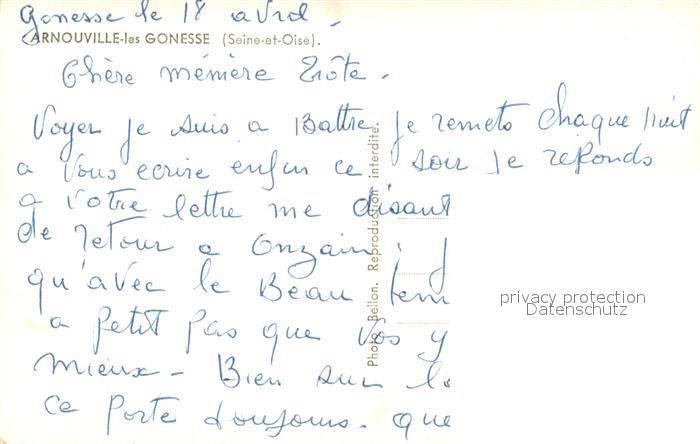 Gonesse le 18 avril.
ARNOUVILLE-les GONESSE (Seine-et-Oise).
Chère mémère Trôte.
Voyez je suis a Battre. je remets chaque nuit
a vous ecrire enfin ce soir je reponds
a votre lettre me disant
de retour a Onzain ; j
qu'avec le Beau tem
a petit pas que vos y
mieux - Bien sur le
ce porte toujours. que
Photo Bellon. Reproduction interdite.
privacy protection
Datenschutz